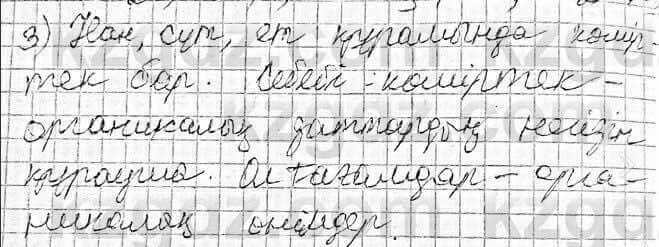 3) Нан, сүт, ет құрамында комір-
тек бар. Себебі - көміртек -
органикалық заттардың негізін
құраушы. Ол тағамдар - орга-
никалық өнімдер.